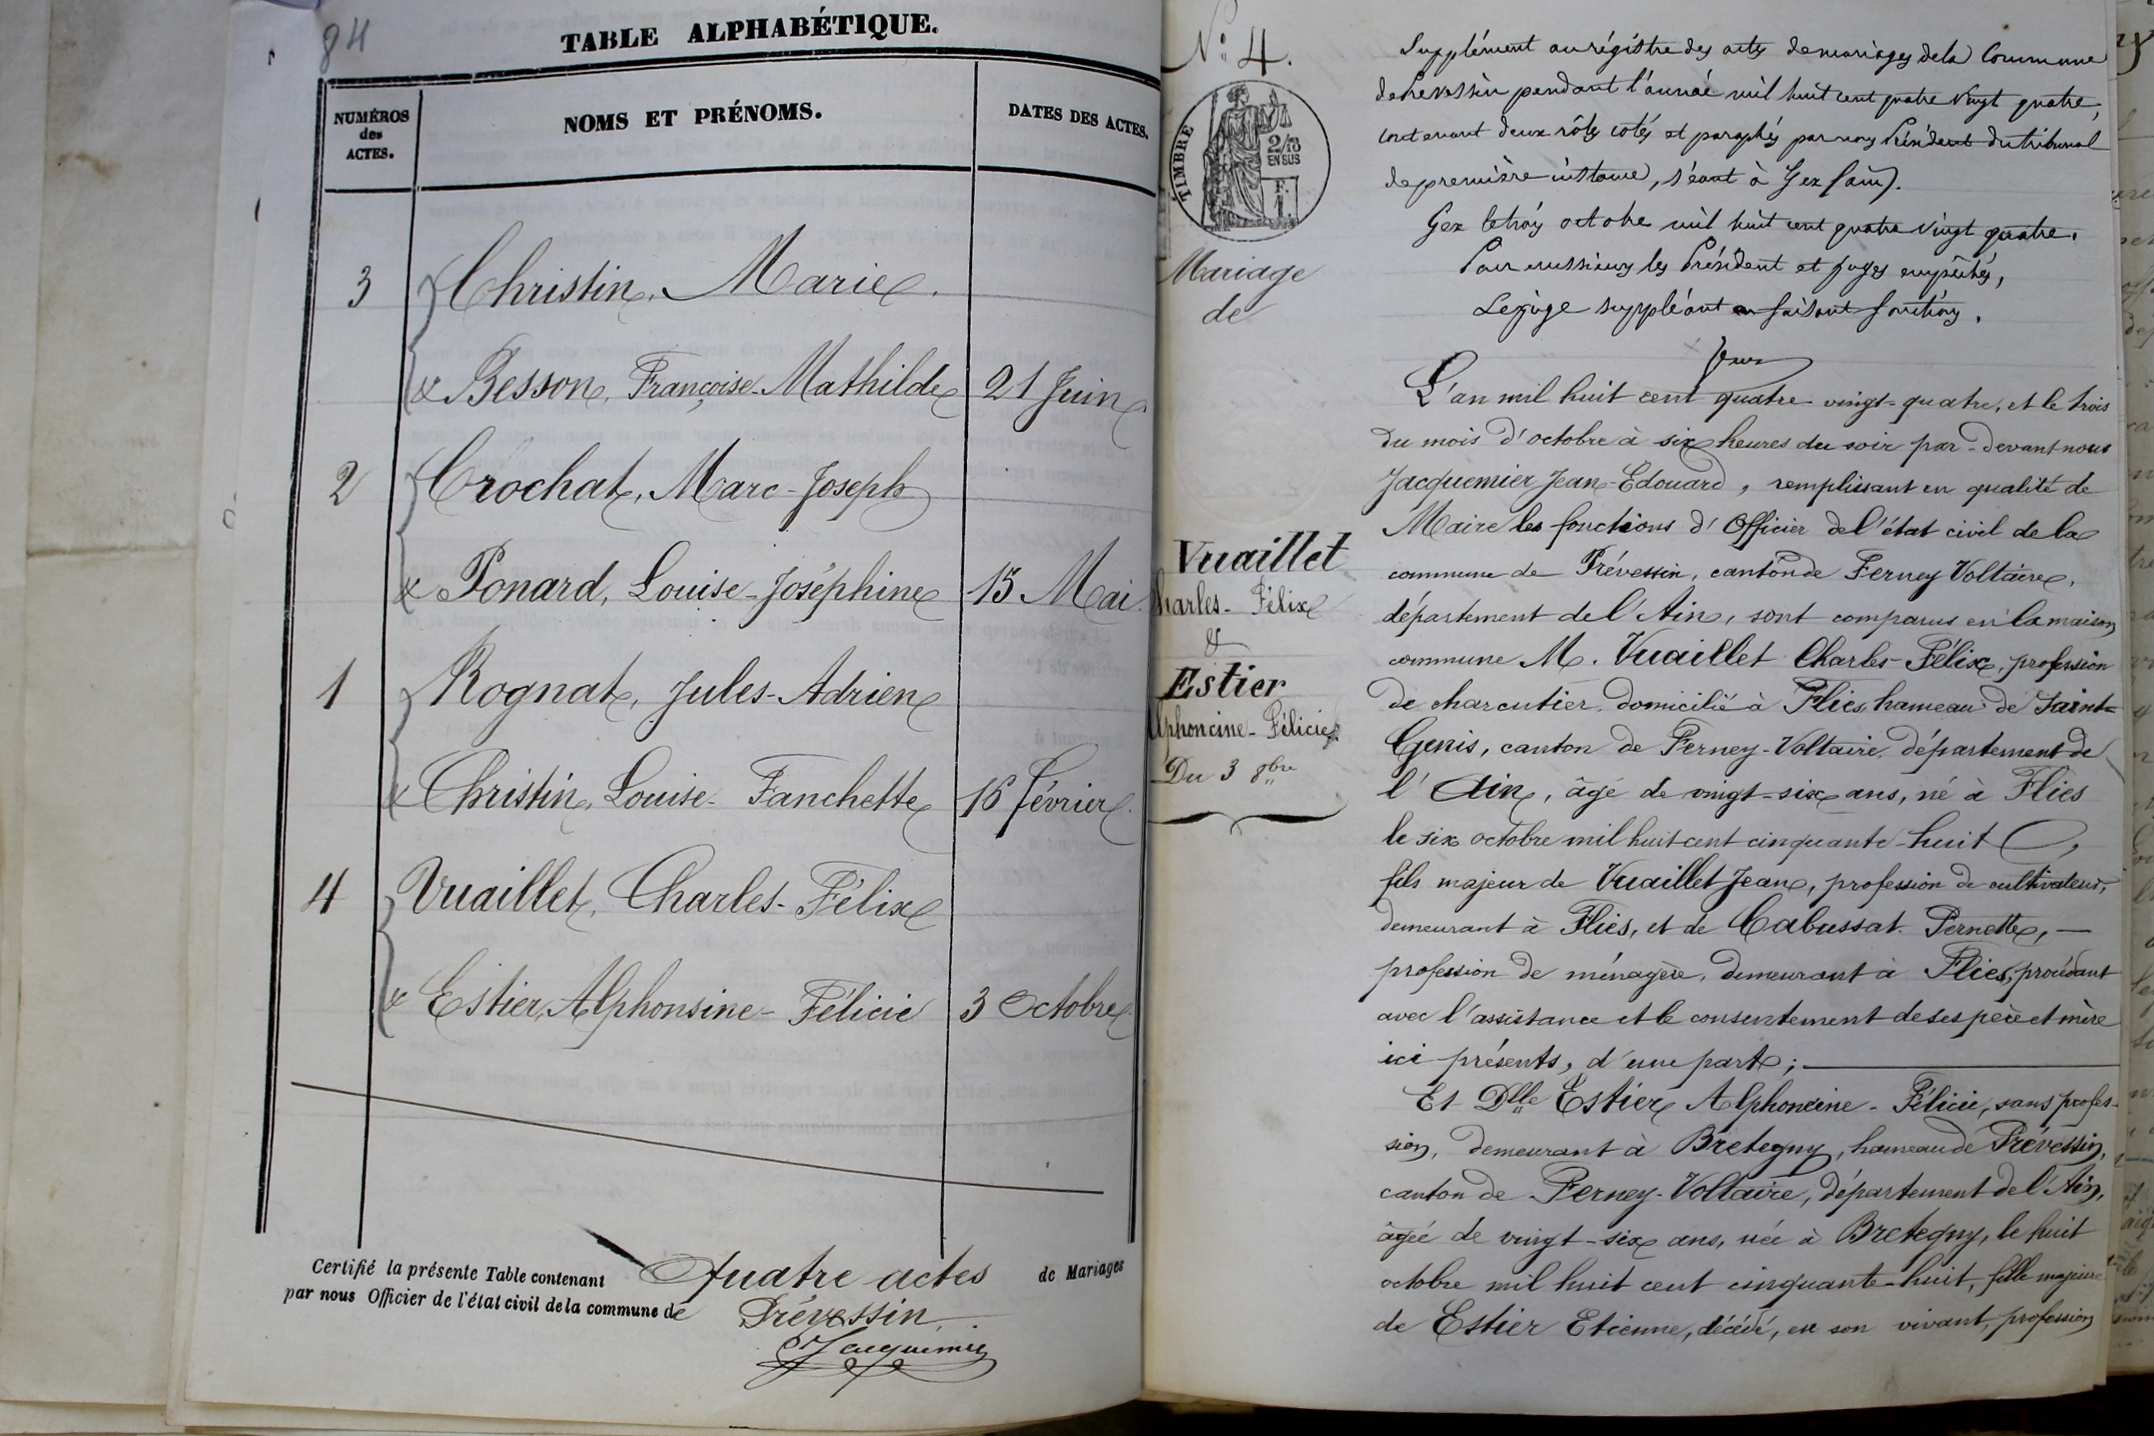 84
TABLE ALPHABÉTIQUE.
NUMÉROS
des
ACTES.
NOMS ET PRÉNOMS.
DATES DES ACTES.
3 Christin, Marie
& Besson, Françoise-Mathilde 21 Juin
2 Crochat, Marc-Joseph
& Ponard, Louise-Joséphine 15 Mai
1 Rognat, Jules-Adrien
& Christin, Louise-Fanchette 16 Février
4 Vuaillet, Charles-Félix
& Estier, Alphonsine-Félicie 3 Octobre
Certifié la présente Table contenant Quatre actes de Mariages
par nous Officier de l'état civil de la commune de Prévessin
Jacquemier
N° 4.
TIMBRE
2/10
EN SUS
Mariage
de
Vuaillet
Charles-Félix
&
Estier
Alphoncine-Félicie
Du 3 8bre
Supplément au régistre des acts de mariages de la Commune
de Prevessin pendant l'année mil huit cent quatre vingt quatre,
contenant deux rôles cotés et paraphés par nous Président du tribunal
de première instance, séant à Gex (ain).
Gex le trois octobre mil huit cent quatre vingt quatre.
Pour messieurs les Président et juges empêchés,
Le juge suppléant en faisant fonctions.
L'an mil huit cent quatre-vingt-quatre, et le trois
du mois d'octobre à six heures du soir par-devant nous
Jacquemier Jean-Edouard, remplissant en qualité de
Maire les fonctions d'Officier de l'état civil de la
commune de Prévessin, canton de Ferney Voltaire,
département de l'Ain, sont comparus en la maison
commune M. Vuaillet Charles-Félix, profession
de charcutier domicilié à Flies hameau de Saint-
Genis, canton de Ferney-Voltaire, département de
l'Ain, âgé de vingt-six ans, né à Flies
le six octobre mil huit cent cinquante-huit,
fils majeur de Vuaillet Jean, profession de cultivateur,
demeurant à Flies, et de Cabussat Pernette, —
profession de ménagère, demeurant à Flies, procédant
avec l'assistance et le consentement de ses père et mère
ici présents, d'une part;
Et Dlle Estier Alphoncine-Félicie, sans profes-
sion, demeurant à Brétegny, hameau de Prévessin,
canton de Ferney-Voltaire, département de l'Ain,
âgée de vingt-six ans, née à Bretegny, le huit
octobre mil huit cent cinquante-huit, fille majeure
de Estier Etienne, décédé, en son vivant, profession